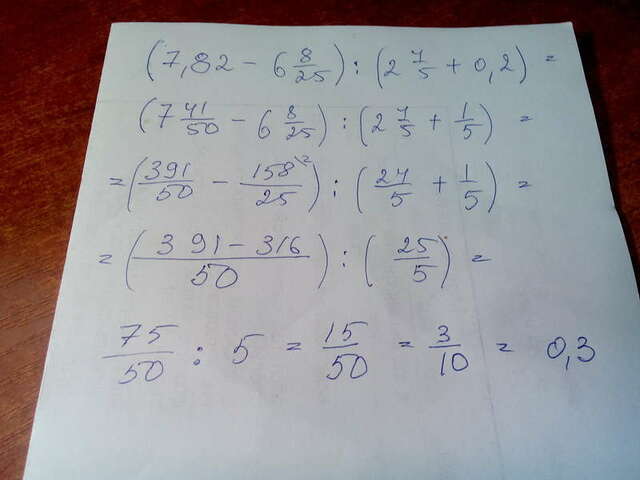 (7,82 - 6 8/25) : (2 7/5 + 0,2) =
(7 41/50 - 6 8/25) : (2 7/5 + 1/5) =
= (391/50 - 158\2/25) : (24/5 + 1/5) =
= (391-316/50) : (25/5) =
75/50 : 5 = 15/50 = 3/10 = 0,3